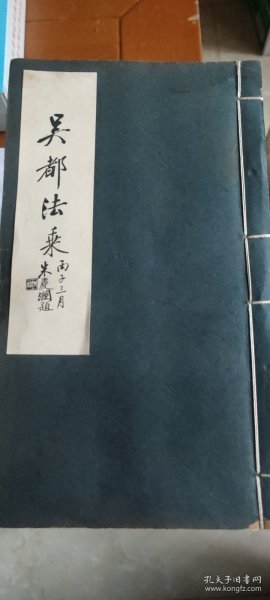 吴都法乘
丙子三月
朱慶瀾題
孔夫子旧书网